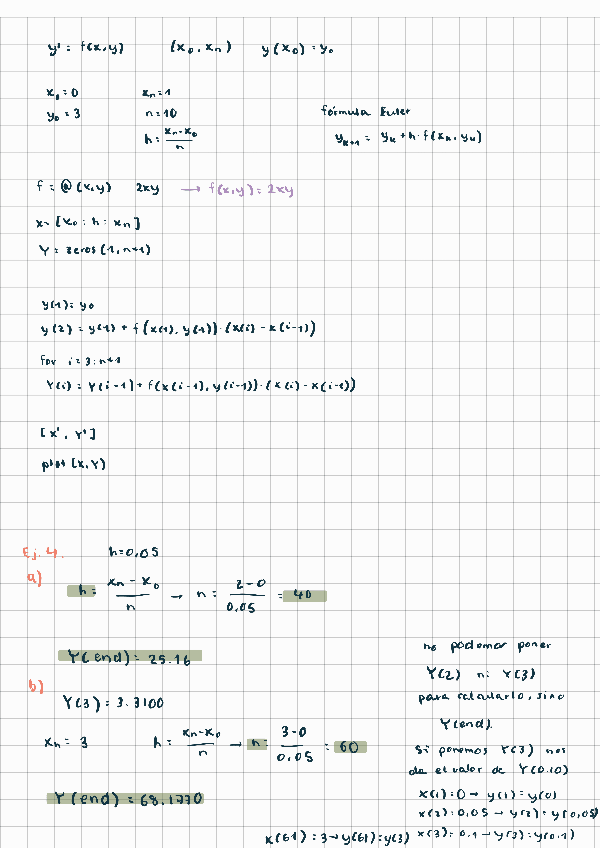 y' = f(x,y) (x₀, xₙ) y(x₀) = y₀
x₀ = 0 xₙ = 1
y₀ = 3 n = 10
h = (xₙ - x₀)/n
fórmula Euler
yₖ₊₁ = yₖ + h · f(xₖ, yₖ)
f = @ (x,y) 2xy → f(x,y) = 2xy
x = [x₀ : h : xₙ]
Y = zeros (1, n+1)
y(1) = y₀
y(2) = y(1) + f(x(1), y(1)) · (x(i) - x(i-1))
for i = 3 : n+1
Y(i) = Y(i-1) + f(x(i-1), y(i-1)) · (x(i) - x(i-1))
[x', Y']
plot (x, Y)
Ej. 4. h = 0,05
a)
h = (xₙ - x₀)/n → n = (2-0)/0,05 = 40
Y(end) = 25.16
b)
Y(3) = 3.3100
xₙ = 3 h = (xₙ - x₀)/n → n = (3-0)/0,05 = 60
Y(end) = 68.1770
no podemos poner
Y(2) ni Y(3)
para calcularlo, sino
Y(end).
Si ponemos Y(3) nos
da el valor de Y(0.10)
x(1) = 0 → y(1) = y(0)
x(2) = 0,05 → y(2) = y(0,05)
x(3) = 0.1 → y(3) = y(0.1)
x(61) = 3 → y(61) = y(3)